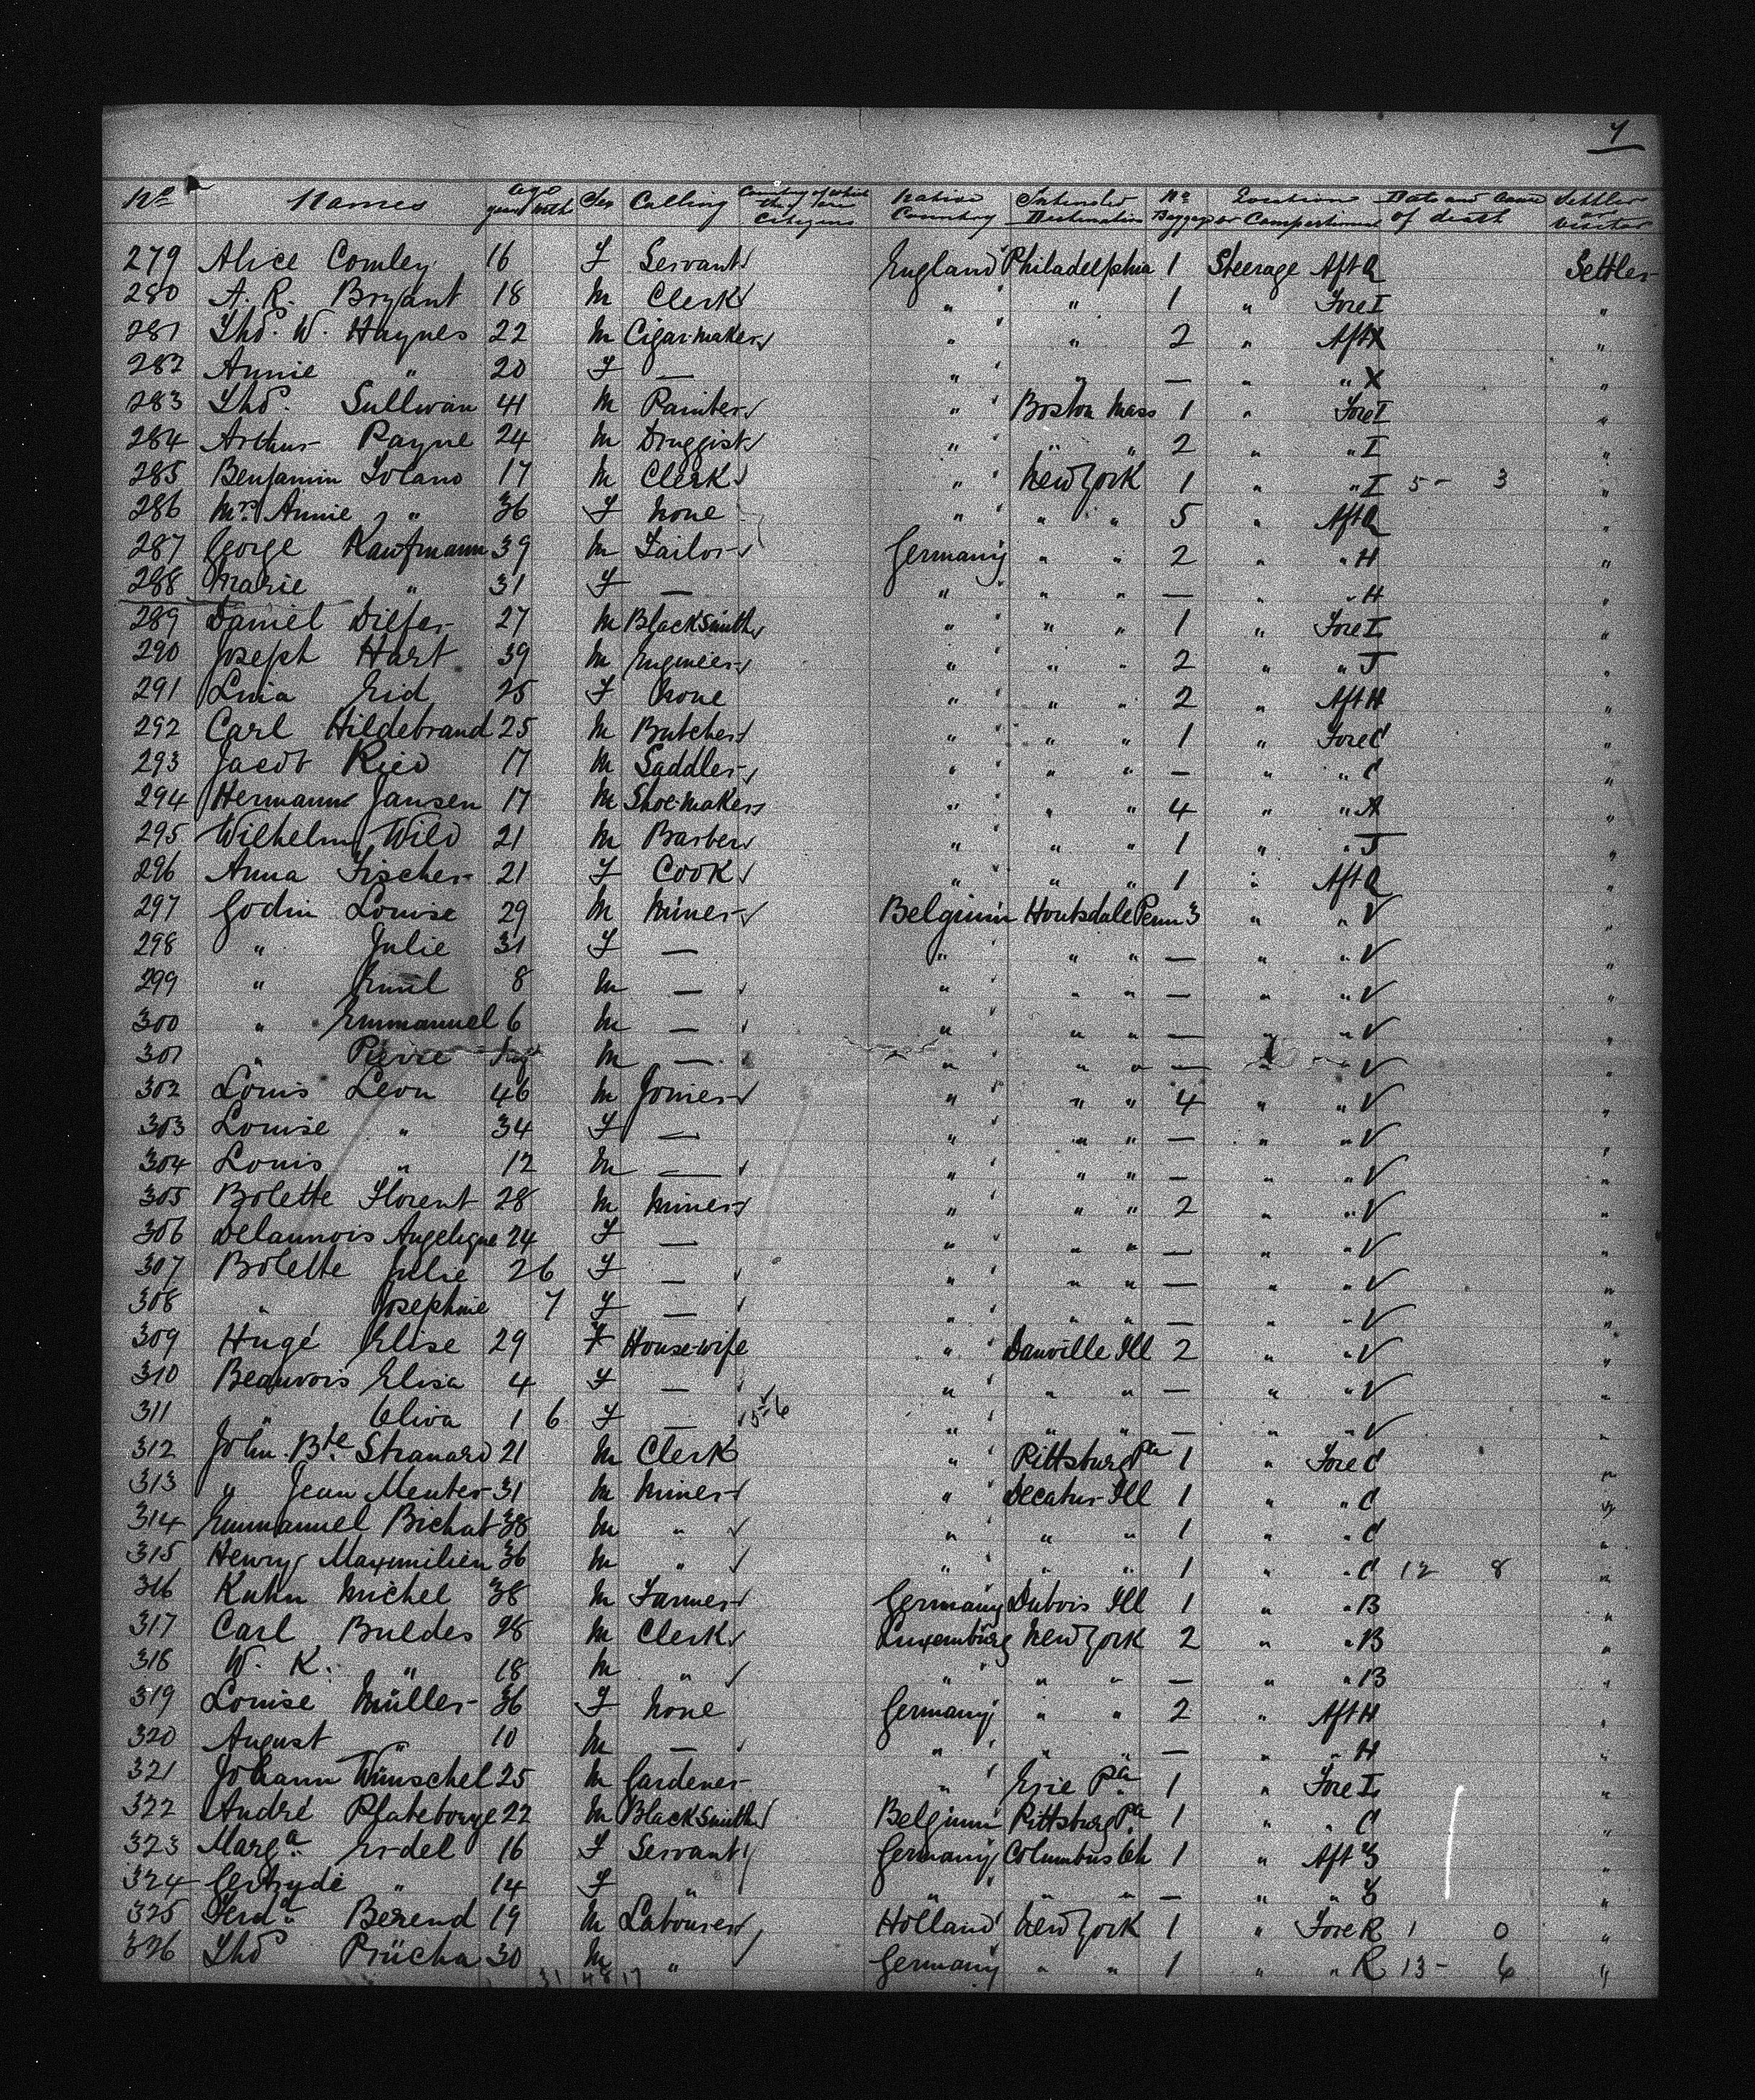 7
No Names age years mths Sex Calling Country of which they are Citizens Native Country Intended Destination No Baggage Location or Compartment Date and Cause of death Settler or Visitor
279 Alice Comley 16 F Servant England Philadelphia 1 Steerage Aft Q Settler
280 A. R. Bryant 18 M Clerk " " 1 " Fore I "
281 Thos. W. Haynes 22 M Cigar-maker " " 2 " Aft X "
282 Annie " 20 F — " " — " " X "
283 Thos. Sullivan 41 M Painter " Boston Mass 1 " Fore I "
284 Arthur Payne 24 M Druggist " " " 2 " " I "
285 Benjamin 17 M Clerk " New York 1 " " I 5 - 3 "
286 Mrs. Annie " 36 F None " " " 5 " Aft Q "
287 George Kaufmann 39 M Tailor Germany " " 2 " " H "
288 Marie " 31 F — " " " — " " H "
289 Daniel Diefer 27 M Blacksmith " " " 1 " Fore I "
290 Joseph Hart 39 M Engineer " " " 2 " " J "
291 Lina Eid 25 F None " " " 2 " Aft H "
292 Carl Hildebrand 25 M Butcher " " " 1 " Fore C "
293 Jacob Ried 17 M Saddler " " " — " " C "
294 Hermann Jansen 17 M Shoe-maker " " " 4 " " A "
295 Wilhelm Wild 21 M Barber " " " 1 " " J "
296 Anna Fischer 21 F Cook " " " 1 " Aft Q "
297 Godin Louise 29 M Miner Belgium Houtsdale Penn 3 " " V "
298 " Julie 31 F — " " " — " " V "
299 " Emil 8 M — " " " — " " V "
300 " Emmanuel 6 M — " " " — " " V "
301 " Pierre Inft M — " " " — " " V "
302 Louis Leon 46 M Joiner " " " 4 " " V "
303 Louise " 34 F — " " " — " " V "
304 Louis " 12 M — " " " — " " V "
305 Bolette Florent 28 M Miner " " " 2 " " V "
306 Delaunois Angelique 24 F — " " " — " " V "
307 Bolette Julie 26 F — " " " — " " V "
308 " Josephine 7 F — " " " — " " V "
309 Hugé Elise 29 F House-wife " Danville Ill 2 " " V "
310 Beauvois Elisa 4 F — " " " — " " V "
311 " Oliva 1 6 F — 15 - 6 " " " — " " V "
312 John Bte. Stranard 21 M Clerk " Pittsburg Pa 1 " Fore C "
313 " Jean Menter 31 M Miner " Decatur Ill 1 " " C "
314 Emmanuel Bichat 38 M " " " " 1 " " C "
315 Henry Maximilien 36 M " " " " 1 " " C 12 8 "
316 Kuhn Michel 38 M Farmer Germany Dubois Ill 1 " " B "
317 Carl Buldes 28 M Clerk Luxemburg New York 2 " " B "
318 W. K. " 18 M " " " " — " " B "
319 Louise Müller 36 F None Germany " " 2 " Aft H "
320 August " 10 M — " " " — " " H "
321 Johann Wünschel 25 M Gardener " Erie Pa. 1 " Fore I "
322 André Plateborge 22 M Blacksmith Belgium Pittsburg Pa. 1 " " C "
323 Marga. Erdel 16 F Servant Germany Columbus Oh 1 " Aft "
324 Gertrude " 14 F " " " " — " " "
325 Ferd. Berend 19 M Labourer Holland New York 1 " Fore R 1 0 "
326 Thos Prücha 30 M " Germany " " 1 " " R 13 - 6 "
31 48 17